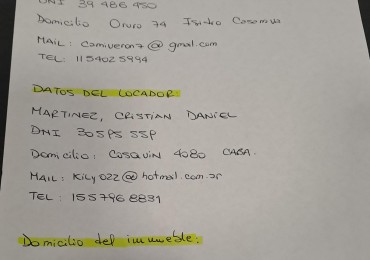 DNI 39 486 450
Domicilio Oruro 74 Isidro Casanova
MAIL: Camiveron7@gmail.com
TEL: 1154025994
DATOS DEL LOCADOR
MARTINEZ, CRISTIAN DANIEL
DNI
Domicilio: Cosquin 4080 CABA.
MAIL: Kily022@hotmail.com.ar
TEL: 155796 8831
Domicilio del inmueble: